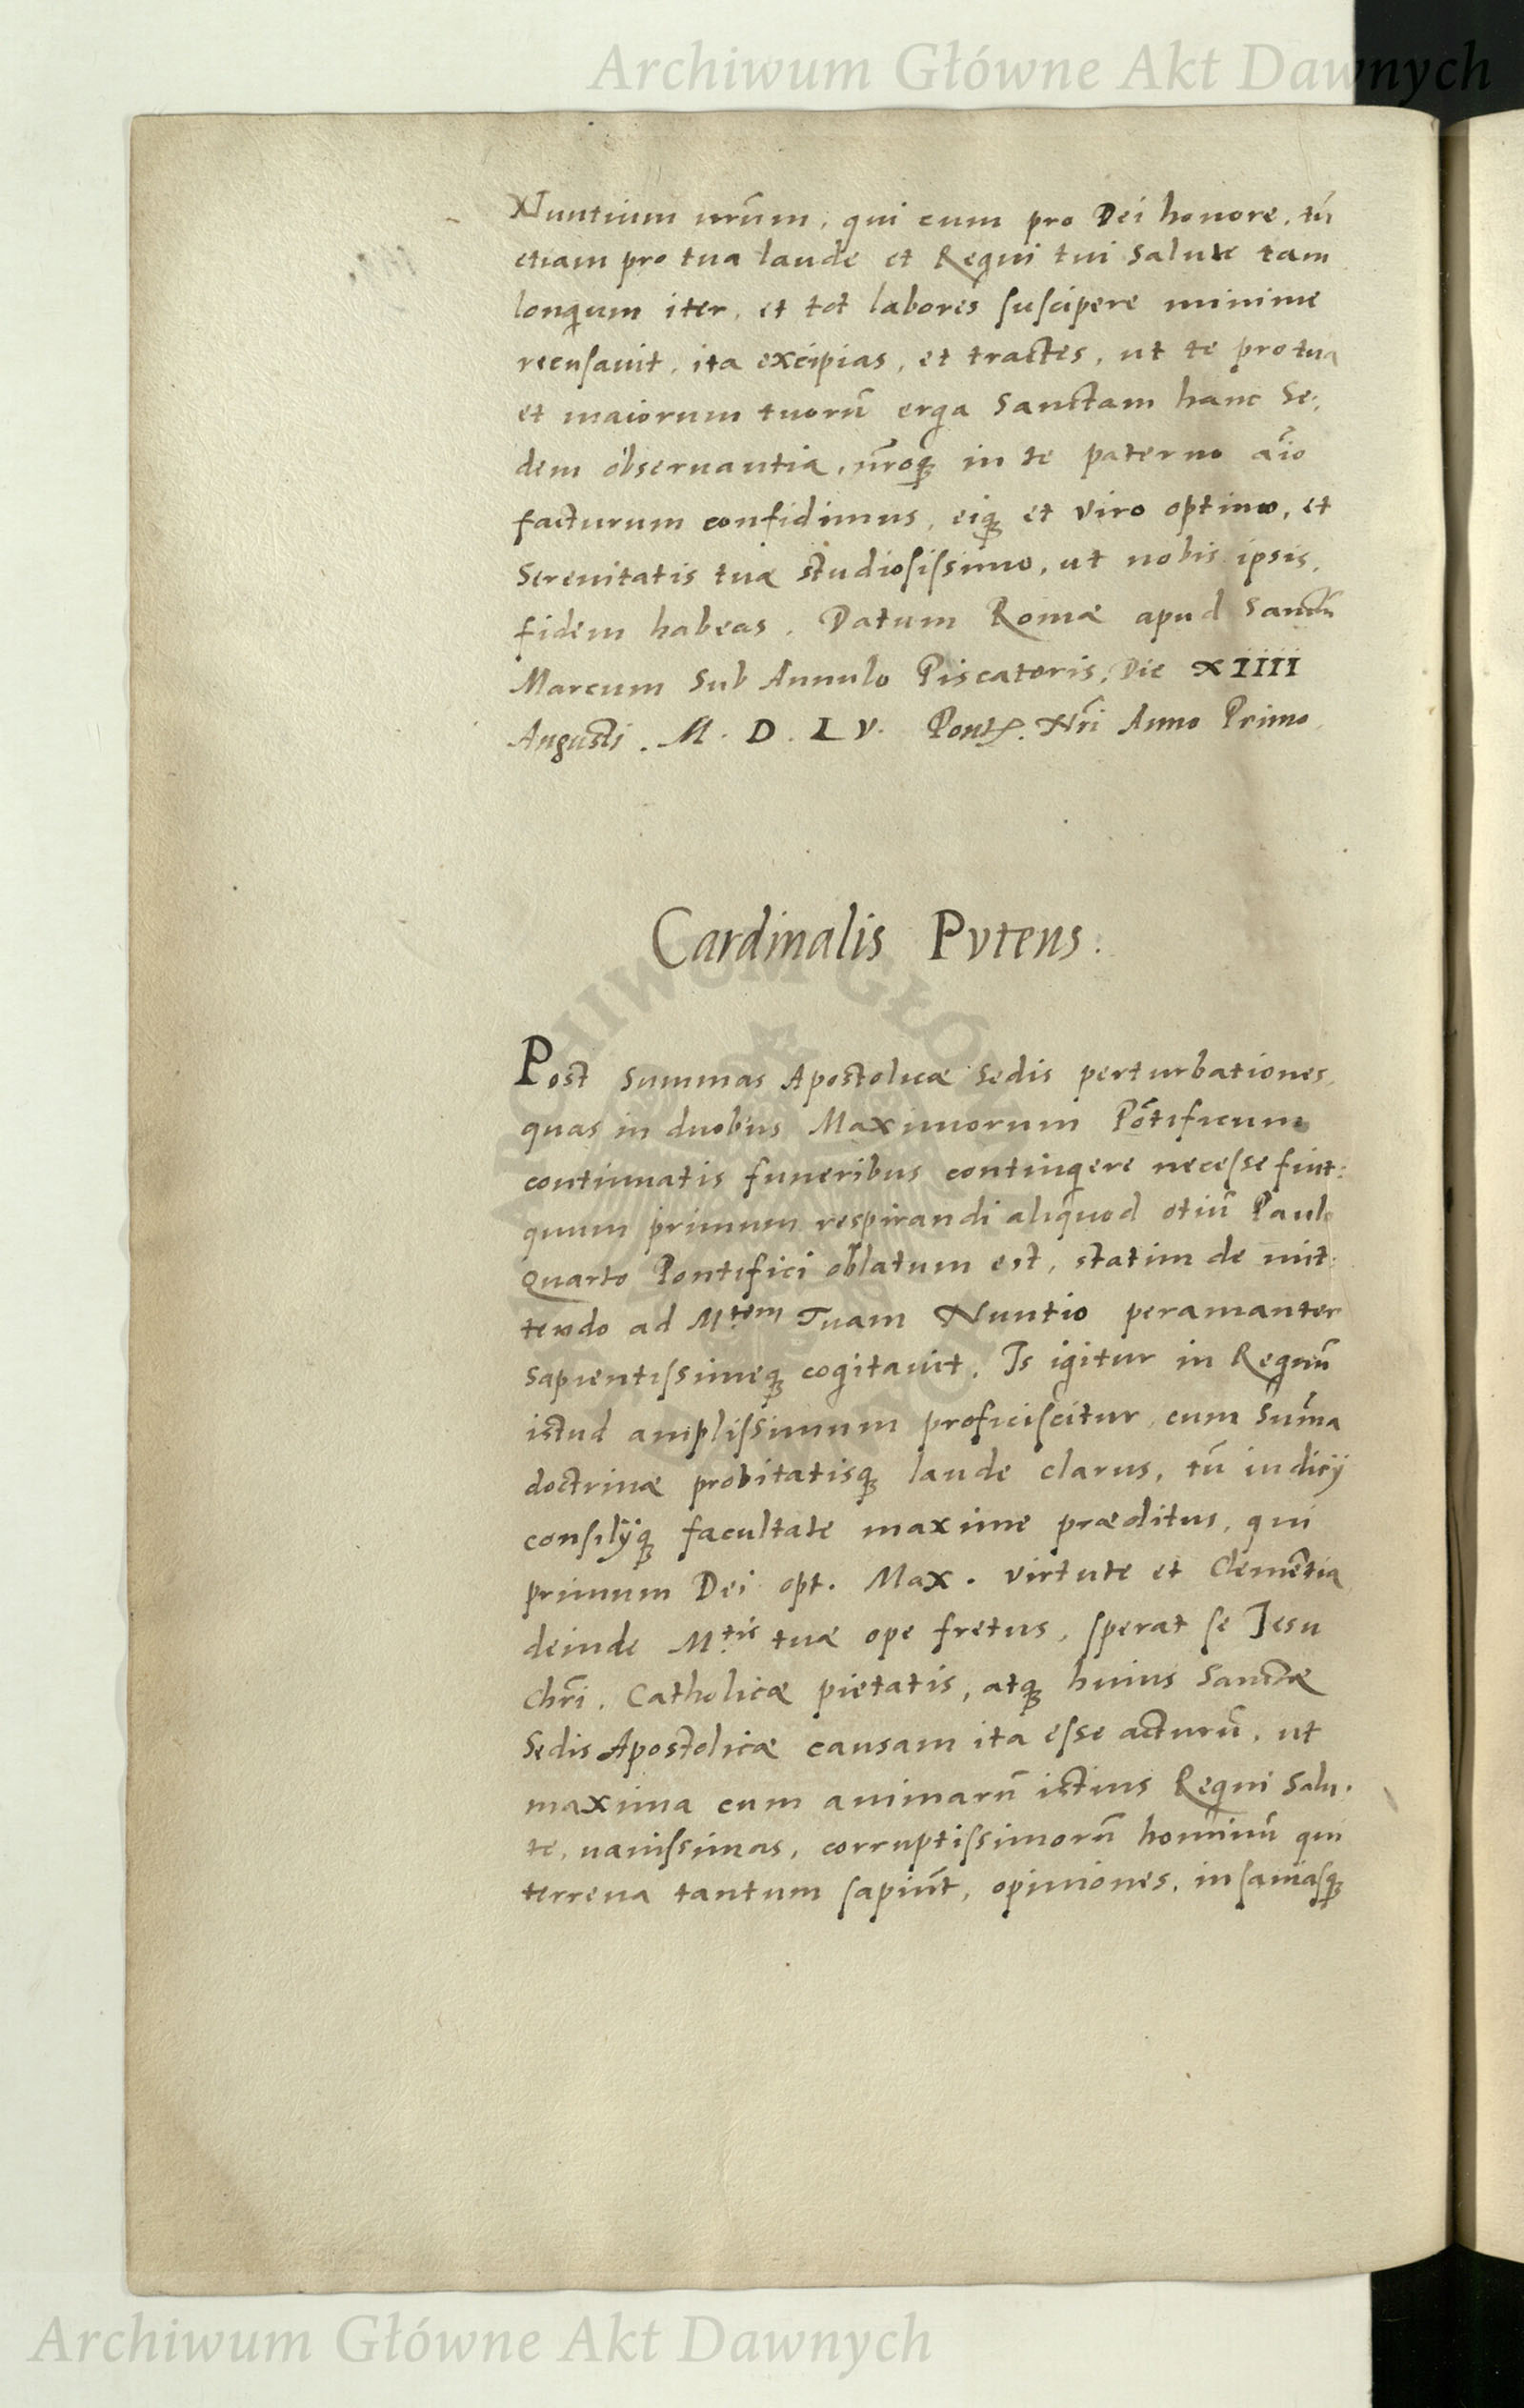 Archiwum Główne Akt Dawnych
Nuntium nrūm, qui cum pro Dei honore, tū
etiam pro tua laude et Regni tui salute tam
longum iter, et tot labores suscipere minime
recusauit, ita excipias, et tractes, ut te pro tua
et maiorum tuorū erga Sanctam hanc Se:
dem obseruantia, nr̄oq; in te paterno aīo
facturum confidimus, eiq; et viro optimo, et
Serenitatis tuæ studiosissimo, ut nobis ipsis,
fidem habeas. Datum Romæ apud Sanctū
Marcum Sub Annulo Piscatoris, Die XIIII
Augusti. M. D. LV. Pont. Nr̄i Anno Primo.
Cardinalis Putens.
Post summas Apostolicæ Sedis perturbationes,
quas in duobus Maximorum Pōtificum
continuatis funeribus contingere necesse fuit:
quum primum respirandi aliquod otiū Paulo
Quarto Pontifici oblatum est, statim de mit:
tendo ad Mtem Tuam Nuntio peramanter
sapientissimeq; cogitauit. Is igitur in Regnū
istud amplissimum proficiscitur, cum sum̄a
doctrinæ probitatisq; laude clarus, tū iudicij
consilijq; facultate maxime præditus, qui
primum Dei opt. Max. virtute et Clemētia
deinde Mtis tuæ ope fretus, sperat se Jesu
Chr̄i. Catholicæ pietatis, atq; huius Sanctæ
Sedis Apostolicæ causam ita esse acturū, ut
maxima cum animarū istius Regni salu.
te, uanissimas, corruptissimorū hominū qui
terrena tantum sapiūt, opiniones, insaniasq;
Archiwum Główne Akt Dawnych